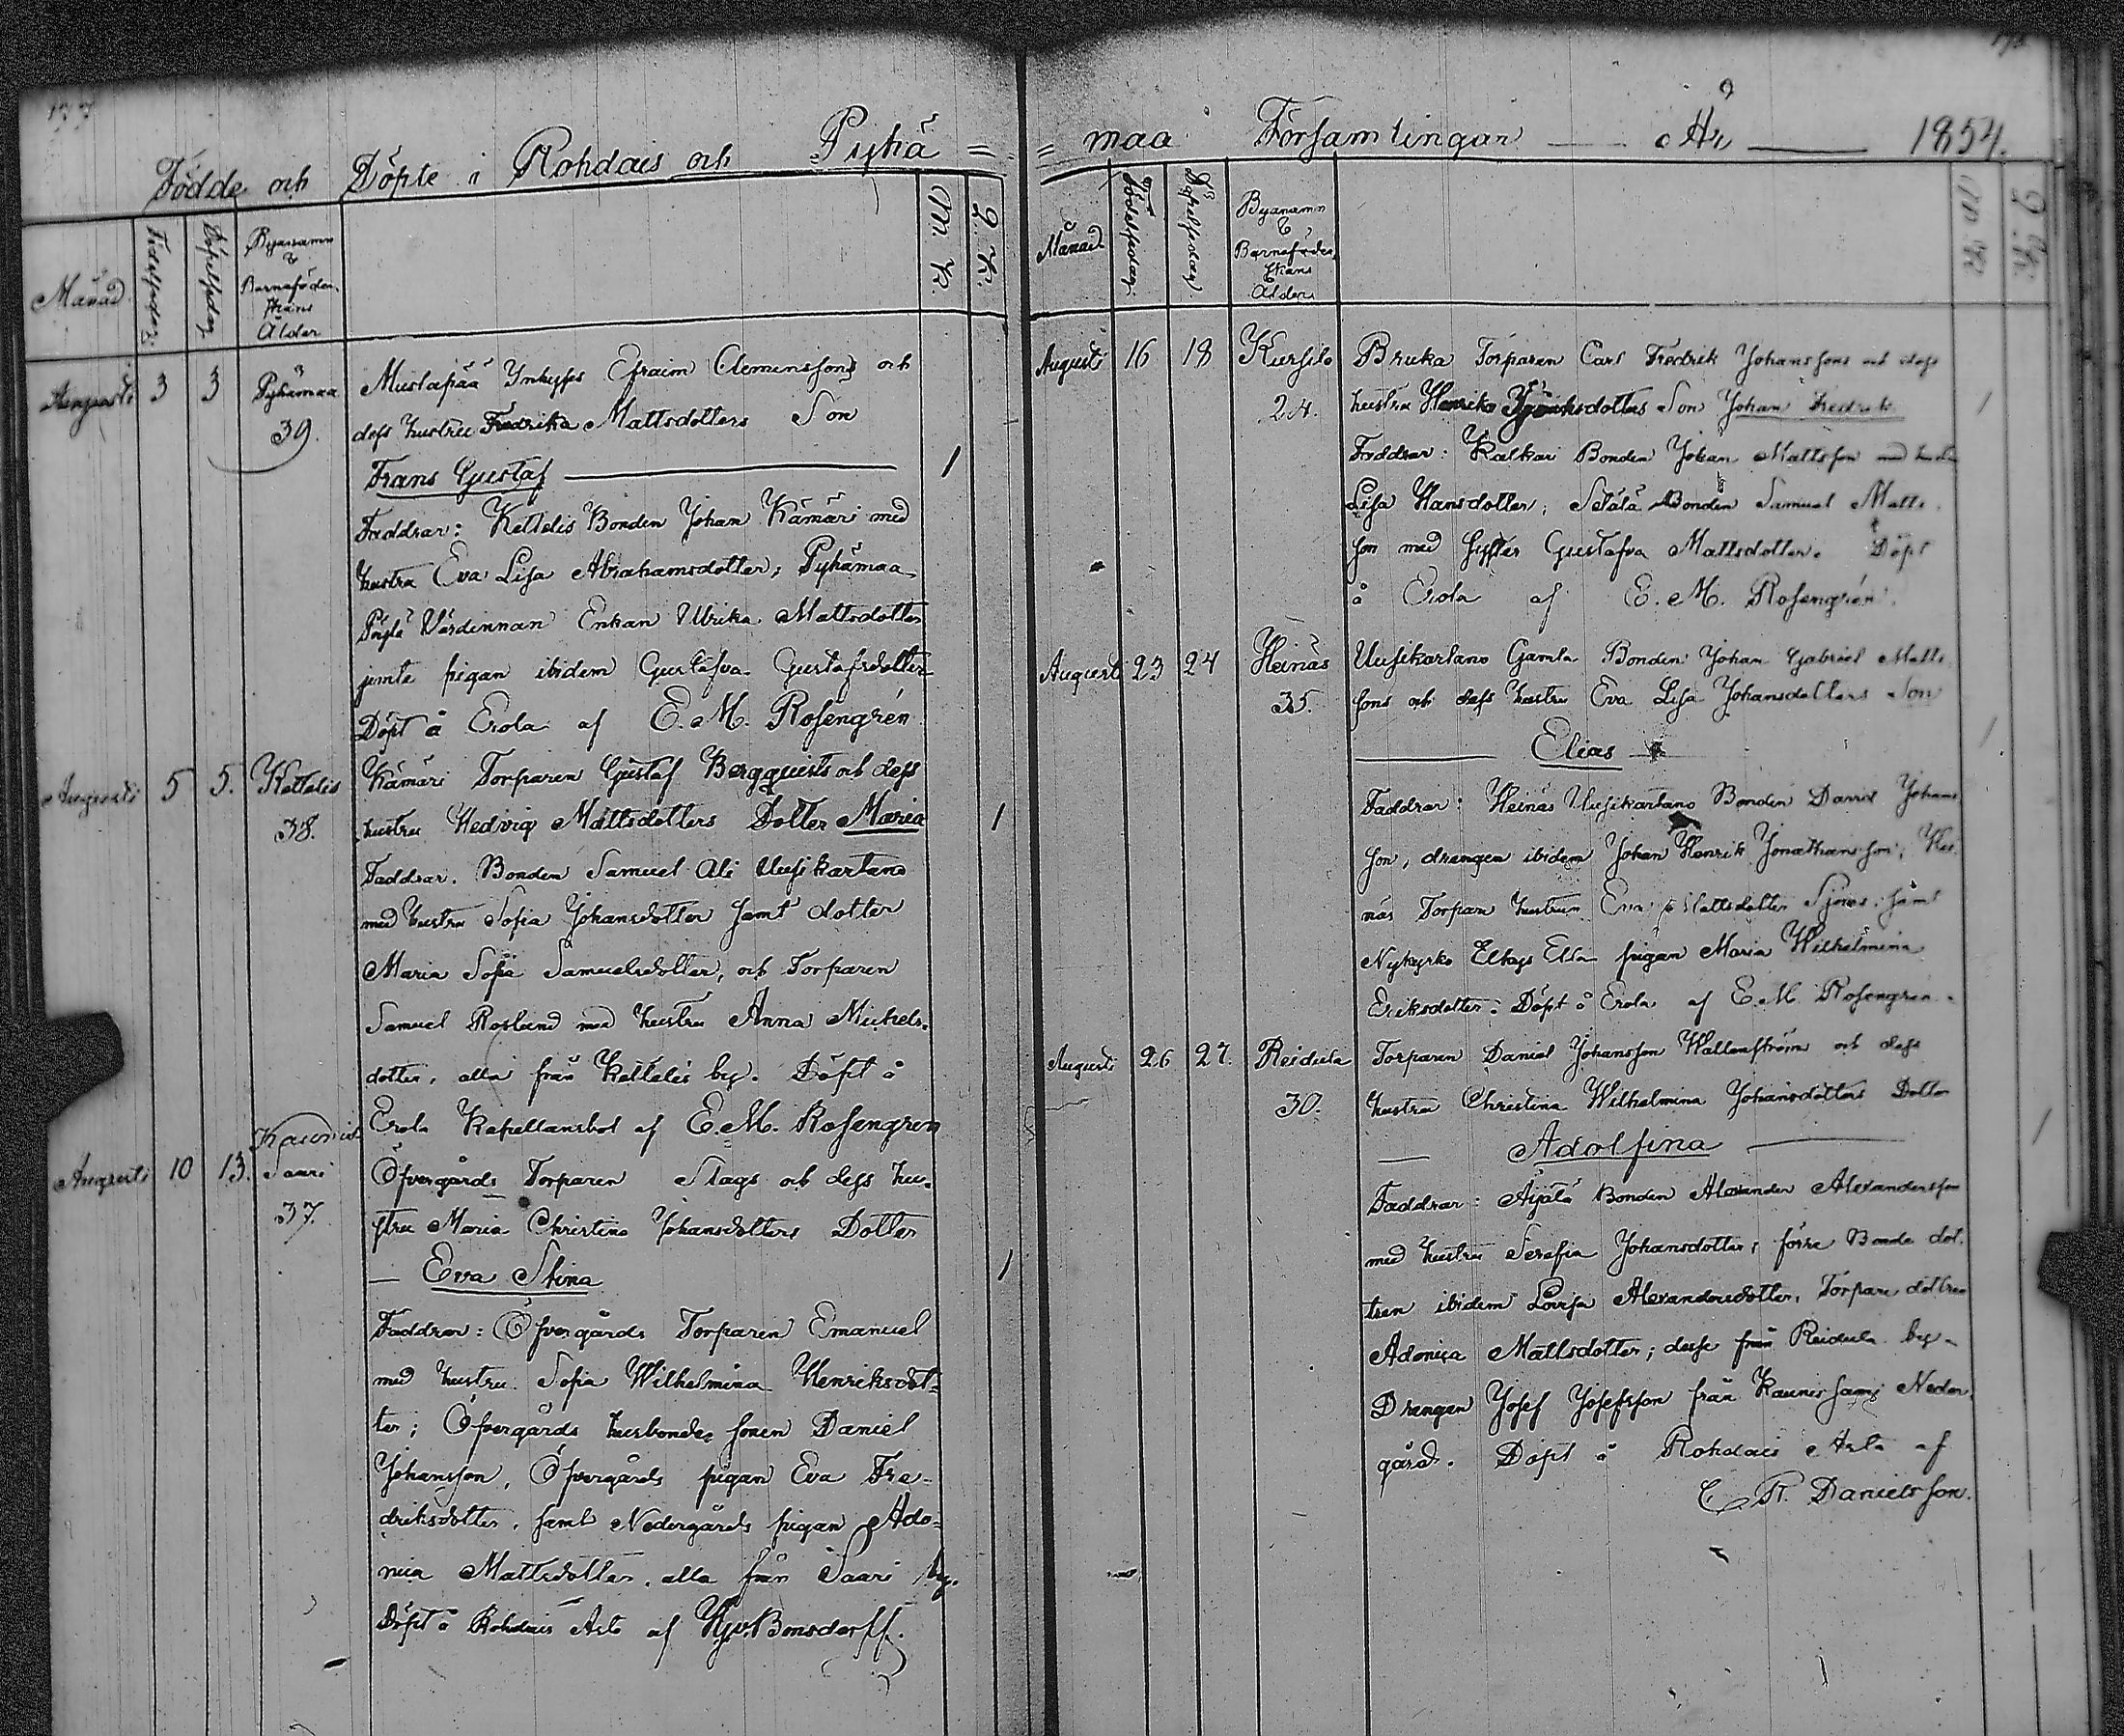 177
Födde och Döpte i Rohdais och Pyhä=
Månad
Födelsedag
Döpelsedag
Byanamn
&
Barnaföder-
skans
Ålder
M. K.
Q. K.
Augusti 3 3 Pyhämaa Mustapää Efraim Clemenssons och
39. dess hustru Fredrika Mattsdotters Son
Frans Gustaf 1
Faddrar: Kettelis Bonden Johan Kämäri med
hustru Eva Lisa Abrahamsdotter; Pyhämaa
Värdinnan Enkan Ulrika Mattsdotter
jemte pigan ibidem Gustafva Gustafsdotter
Döpt å Erola af E. M. Rosengrén
Augusti 5 5. Kettelis Kämäri Torparen Gustaf Bergquists och dess
38. hustru Hedvig Mattsdotters Dotter Maria 1
Faddrar. Bonden Samuel Ali Uusikartano
med hustru Sofia Johansdotter samt dotter
Maria Sofia Samuelsdotter, och Torparen
Samuel Roslund med hustru Anna Michels-
dotter, alla från Kettelis by. Döpt å
Erola Kapellansbol af E. M. Rosengren
Kaunis
Augusti 10 13. Saari Öfvergårds Torparen Slags och dess hu-
37. stru Maria Christina Johansdotters Dotter
Eva Stina 1
Faddrar: Öfvergårds Torparen Emanuel
med hustru Sofia Wilhelmina Henriksdot-
ter; Öfvergårds husbonde sonen Daniel
Johansson, Öfvergårds pigan Eva Fre-
driksdotter, samt Nedergårds pigan Ado-
nia Mattsdotter. alla från Saari by.
Döpt å Rohdais Arla af Bonsdorff.
= maa Församlingar År 1854.
Månad
Födelsedag
Döpelsedag
Byanamn
&
Barnaföder-
skans
Ålder
M K
Q. K.
Augusti 16 18 Kursila Bruka Torparen Carl Fredrik Johanssons och dess
24. hustru Henrika Son Johan Fredrik 1
Faddrar: Kalkari Bonden Johan Mattsson med hustru
Lisa Hansdotter; Sälälä Bonden Samuel Matts-
son med syster Gustafva Mattsdotter. Döpt
å Erola af E. M. Rosengrén.
Augusti 23 24 Heinäs Uusikartano Gamla Bonden Johan Gabriel Matts-
35. sons och dess hustru Eva Lisa Johansdotters Son
Elias 1
Faddrar: Heinäs Uusikartano Bonden David Johans-
son, drängen ibidem Johan Henrik Jonathansson; Hei-
näs Torpare hustrun Eva Mattsdotter samt
Nykyrko pigan Maria Wilhelmina
Eriksdotter. Döpt å Erola af E. M. Rosengren.
Augusti 26 27. Reidula Torparen Daniel Johansson Wallenström och dess
30. hustru Christina Wilhelmina Johansdotters Dotter
Adolfina 1
Faddrar: Äijälä Bonden Alexander Alexandersson
med hustru Serafia Johansdotter, förre Bonde dot-
tren ibidem Lovisa Alexandersdotter, Torpare dottren
Adonica Mattsdotter; desse från Reidula by-
Drängen Josef Josefsson från Kaunissaari Neder-
gård. Döpt å Rohdais Arla af
C. R. Danielsson.